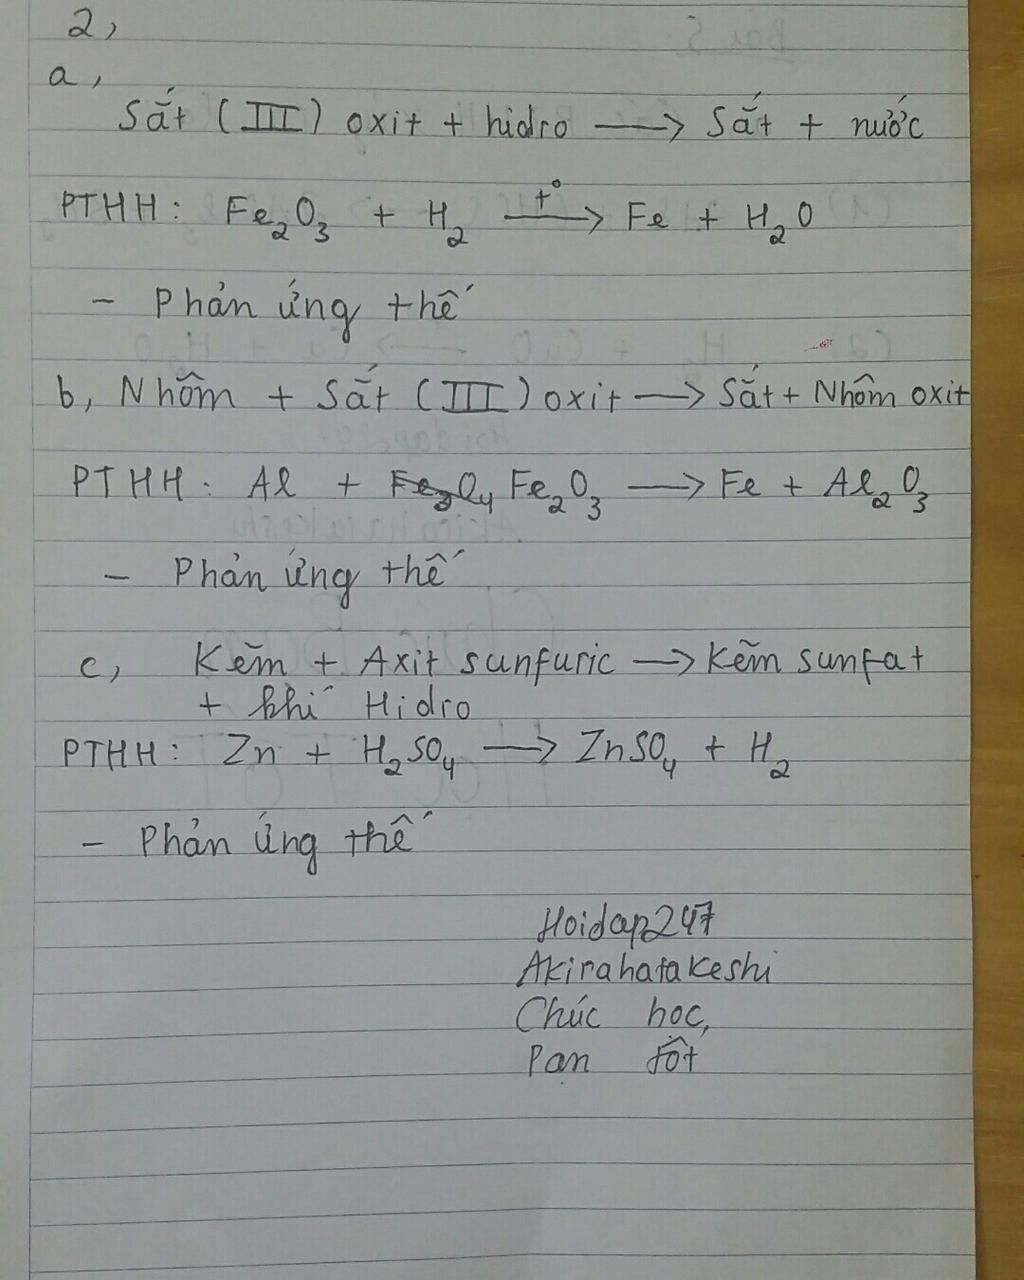 2,
a,
Sắt (III) oxit + hidro ⟶ Sắt + nước
PTHH: Fe₂O₃ + H₂ t°⟶ Fe + H₂O
- Phản ứng thế
b, Nhôm + Sắt (III) oxit ⟶ Sắt + Nhôm oxit
PTHH: Al + Fe₃O₄ Fe₂O₃ ⟶ Fe + Al₂O₃
- Phản ứng thế
c, Kẽm + Axit sunfuric ⟶ Kẽm sunfat
+ khí Hidro
PTHH: Zn + H₂SO₄ ⟶ ZnSO₄ + H₂
- Phản ứng thế
Hoidap247
Akirahatakeshi
Chúc học,
Pạn tốt